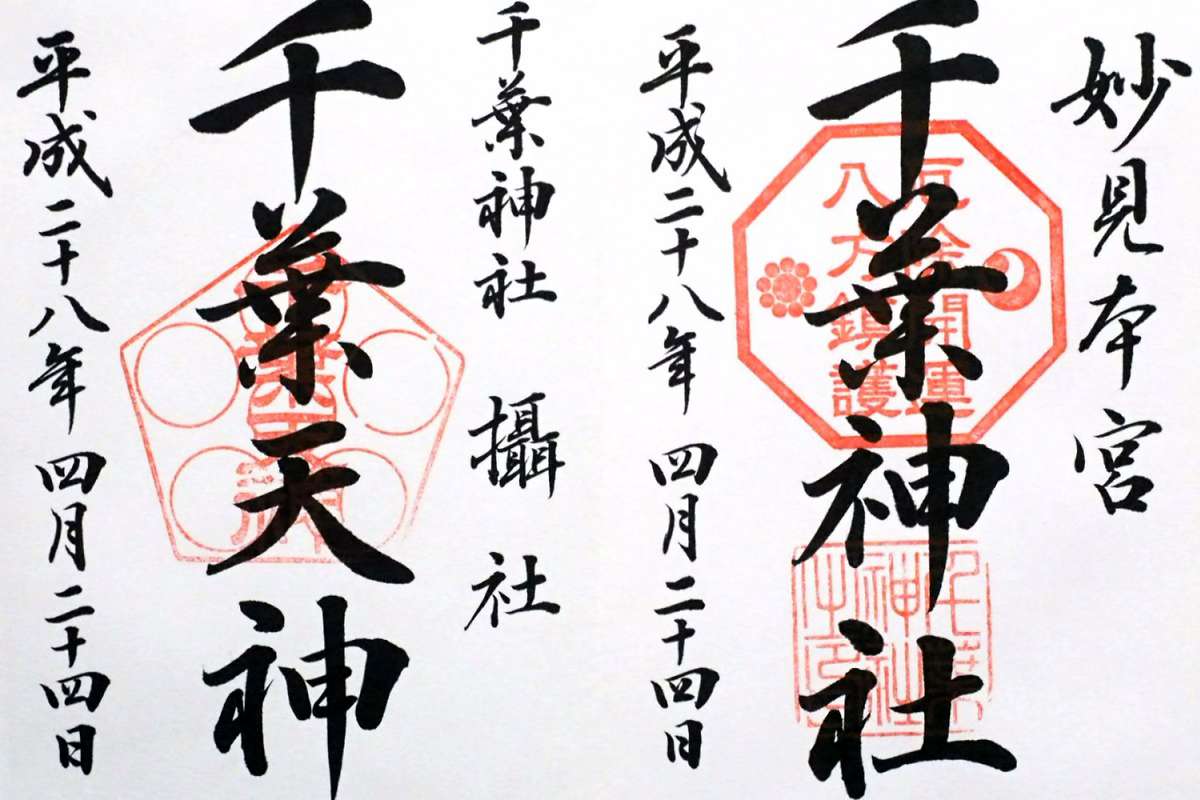 妙見本宮
千葉神社
平成二十八年 四月二十四日
八方鎮護
開運
千葉神社 攝社
千葉天神
平成二十八年 四月二十四日